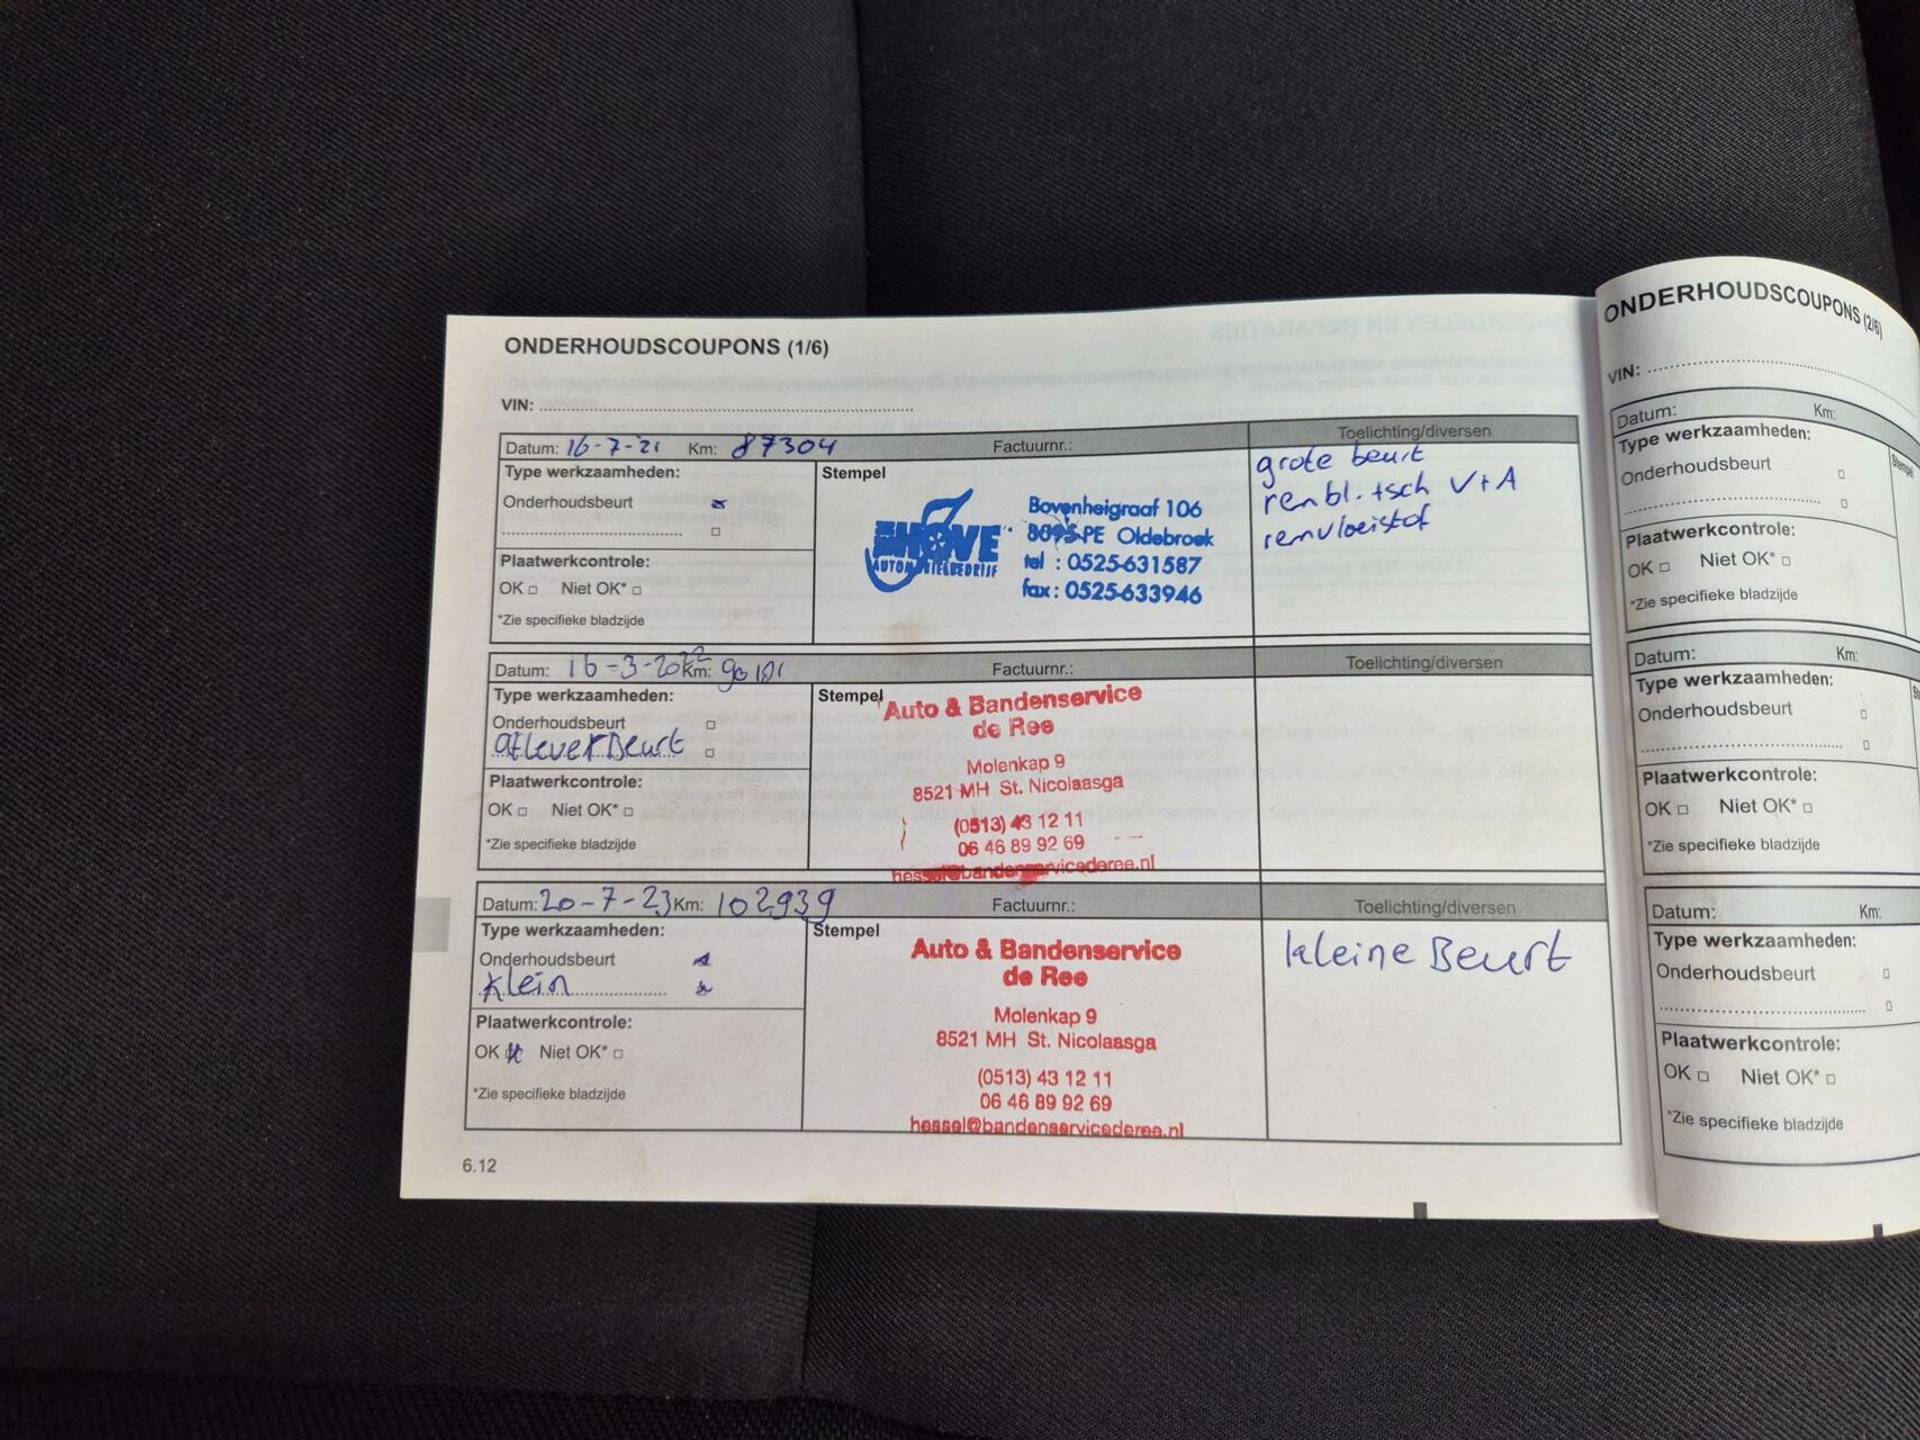 ONDERHOUDSCOUPONS (1/6)
VIN:
Datum: 16-7-'21 Km: 87304 Factuurnr.: Toelichting/diversen
Type werkzaamheden:
Onderhoudsbeurt
Plaatwerkcontrole:
OK Niet OK*
*Zie specifieke bladzijde
Stempel
HOVE
Bovenheigraaf 106
8095 PE Oldebroek
tel : 0525-631587
fax : 0525-633946
grote beurt
rembl. + sch V+A
remvloeistof
Datum: 16-3-2022 Km: Factuurnr.: Toelichting/diversen
Type werkzaamheden:
Onderhoudsbeurt
afleverBeurt
Plaatwerkcontrole:
OK Niet OK*
*Zie specifieke bladzijde
Stempel
Auto & Bandenservice
de Ree
Molenkap 9
8521 MH St. Nicolaasga
(0513) 43 12 11
06 46 89 92 69
hessel@bandenservicederee.nl
Datum: 20-7-23 Km: 102939 Factuurnr.: Toelichting/diversen
Type werkzaamheden:
Onderhoudsbeurt
Klein
Plaatwerkcontrole:
OK Niet OK*
*Zie specifieke bladzijde
Stempel
Auto & Bandenservice
de Ree
Molenkap 9
8521 MH St. Nicolaasga
(0513) 43 12 11
06 46 89 92 69
hessel@bandenservicederee.nl
kleine Beurt
6.12
ONDERHOUDSCOUPONS (2/6)
VIN:
Datum: Km:
Type werkzaamheden:
Stempel
Onderhoudsbeurt
Plaatwerkcontrole:
OK Niet OK*
*Zie specifieke bladzijde
Datum: Km:
Type werkzaamheden:
Onderhoudsbeurt
Plaatwerkcontrole:
OK Niet OK*
*Zie specifieke bladzijde
Datum: Km:
Type werkzaamheden:
Onderhoudsbeurt
Plaatwerkcontrole:
OK Niet OK*
*Zie specifieke bladzijde